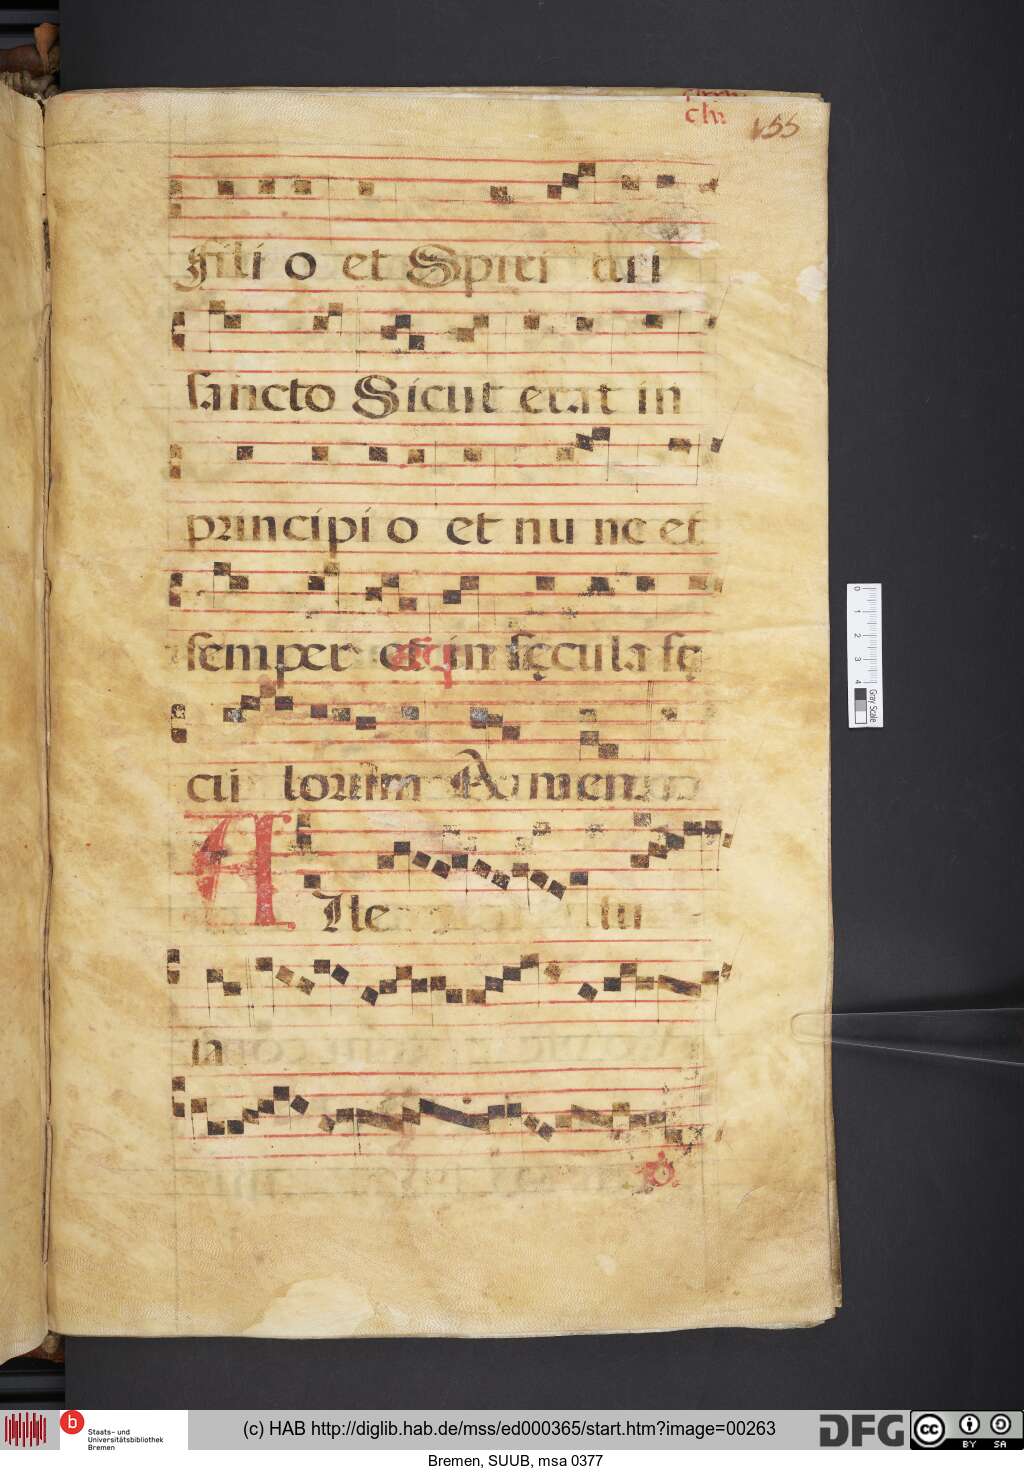 155
filio et Spiritui
sancto Sicut erat in
principio et nunc et
semper et in sęcula sę
culorum Amen
Alle lu
ia
0 1 2 3 4
Gray Scale
b
Staats- und
Universitätsbibliothek
Bremen
(c) HAB http://diglib.hab.de/mss/ed000365/start.htm?image=00263
DFG
cc BY SA
Bremen, SUUB, msa 0377